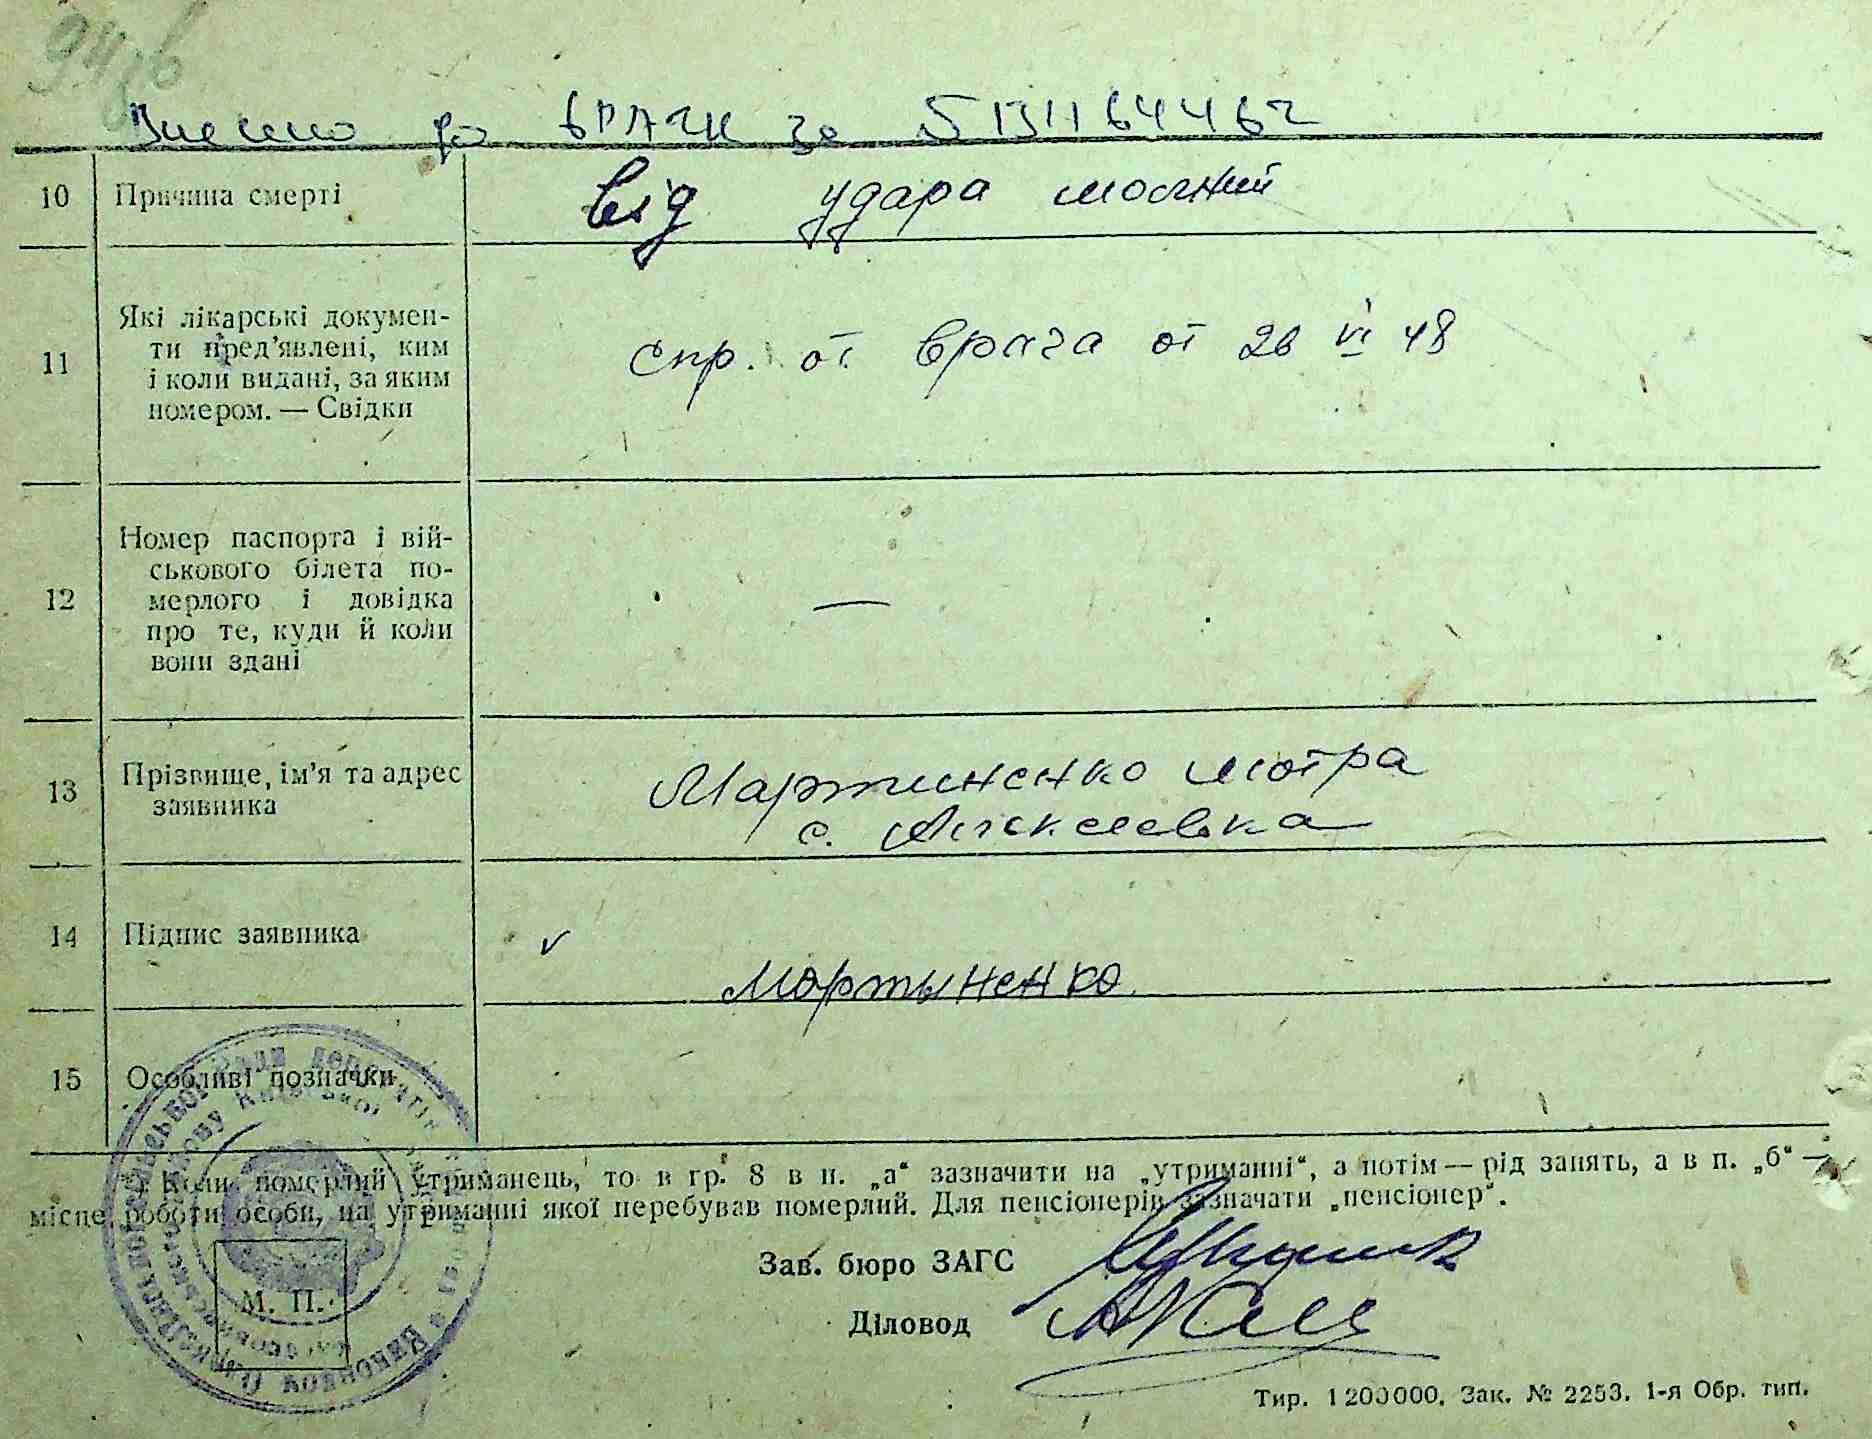 Внесено до
10 Причина смерті від удара молний
11 Які лікарські докумен-
ти пред’явлені, ким
і коли видані, за яким
номером. — Свідки
спр. от врача от 26 VI 48
12 Номер паспорта і вій-
ськового білета по-
мерлого і довідка
про те, куди й коли
вони здані
—
13 Прізвище, ім’я та адрес
заявника
Мартиненко
с.
14 Підпис заявника
Мартыненко
15 Особливі позначки
Коли померлий утриманець, то в гр. 8 в п. „а“ зазначити на „утриманні“, а потім — рід занять, а в п. „б“ —
місце роботи особи, на утриманні якої перебував померлий. Для пенсіонерів зазначати „пенсіонер“.
Зав. бюро ЗАГС
Діловод
М. П.
Тир. 1200000. Зак. № 2253. 1-я Обр. тип.